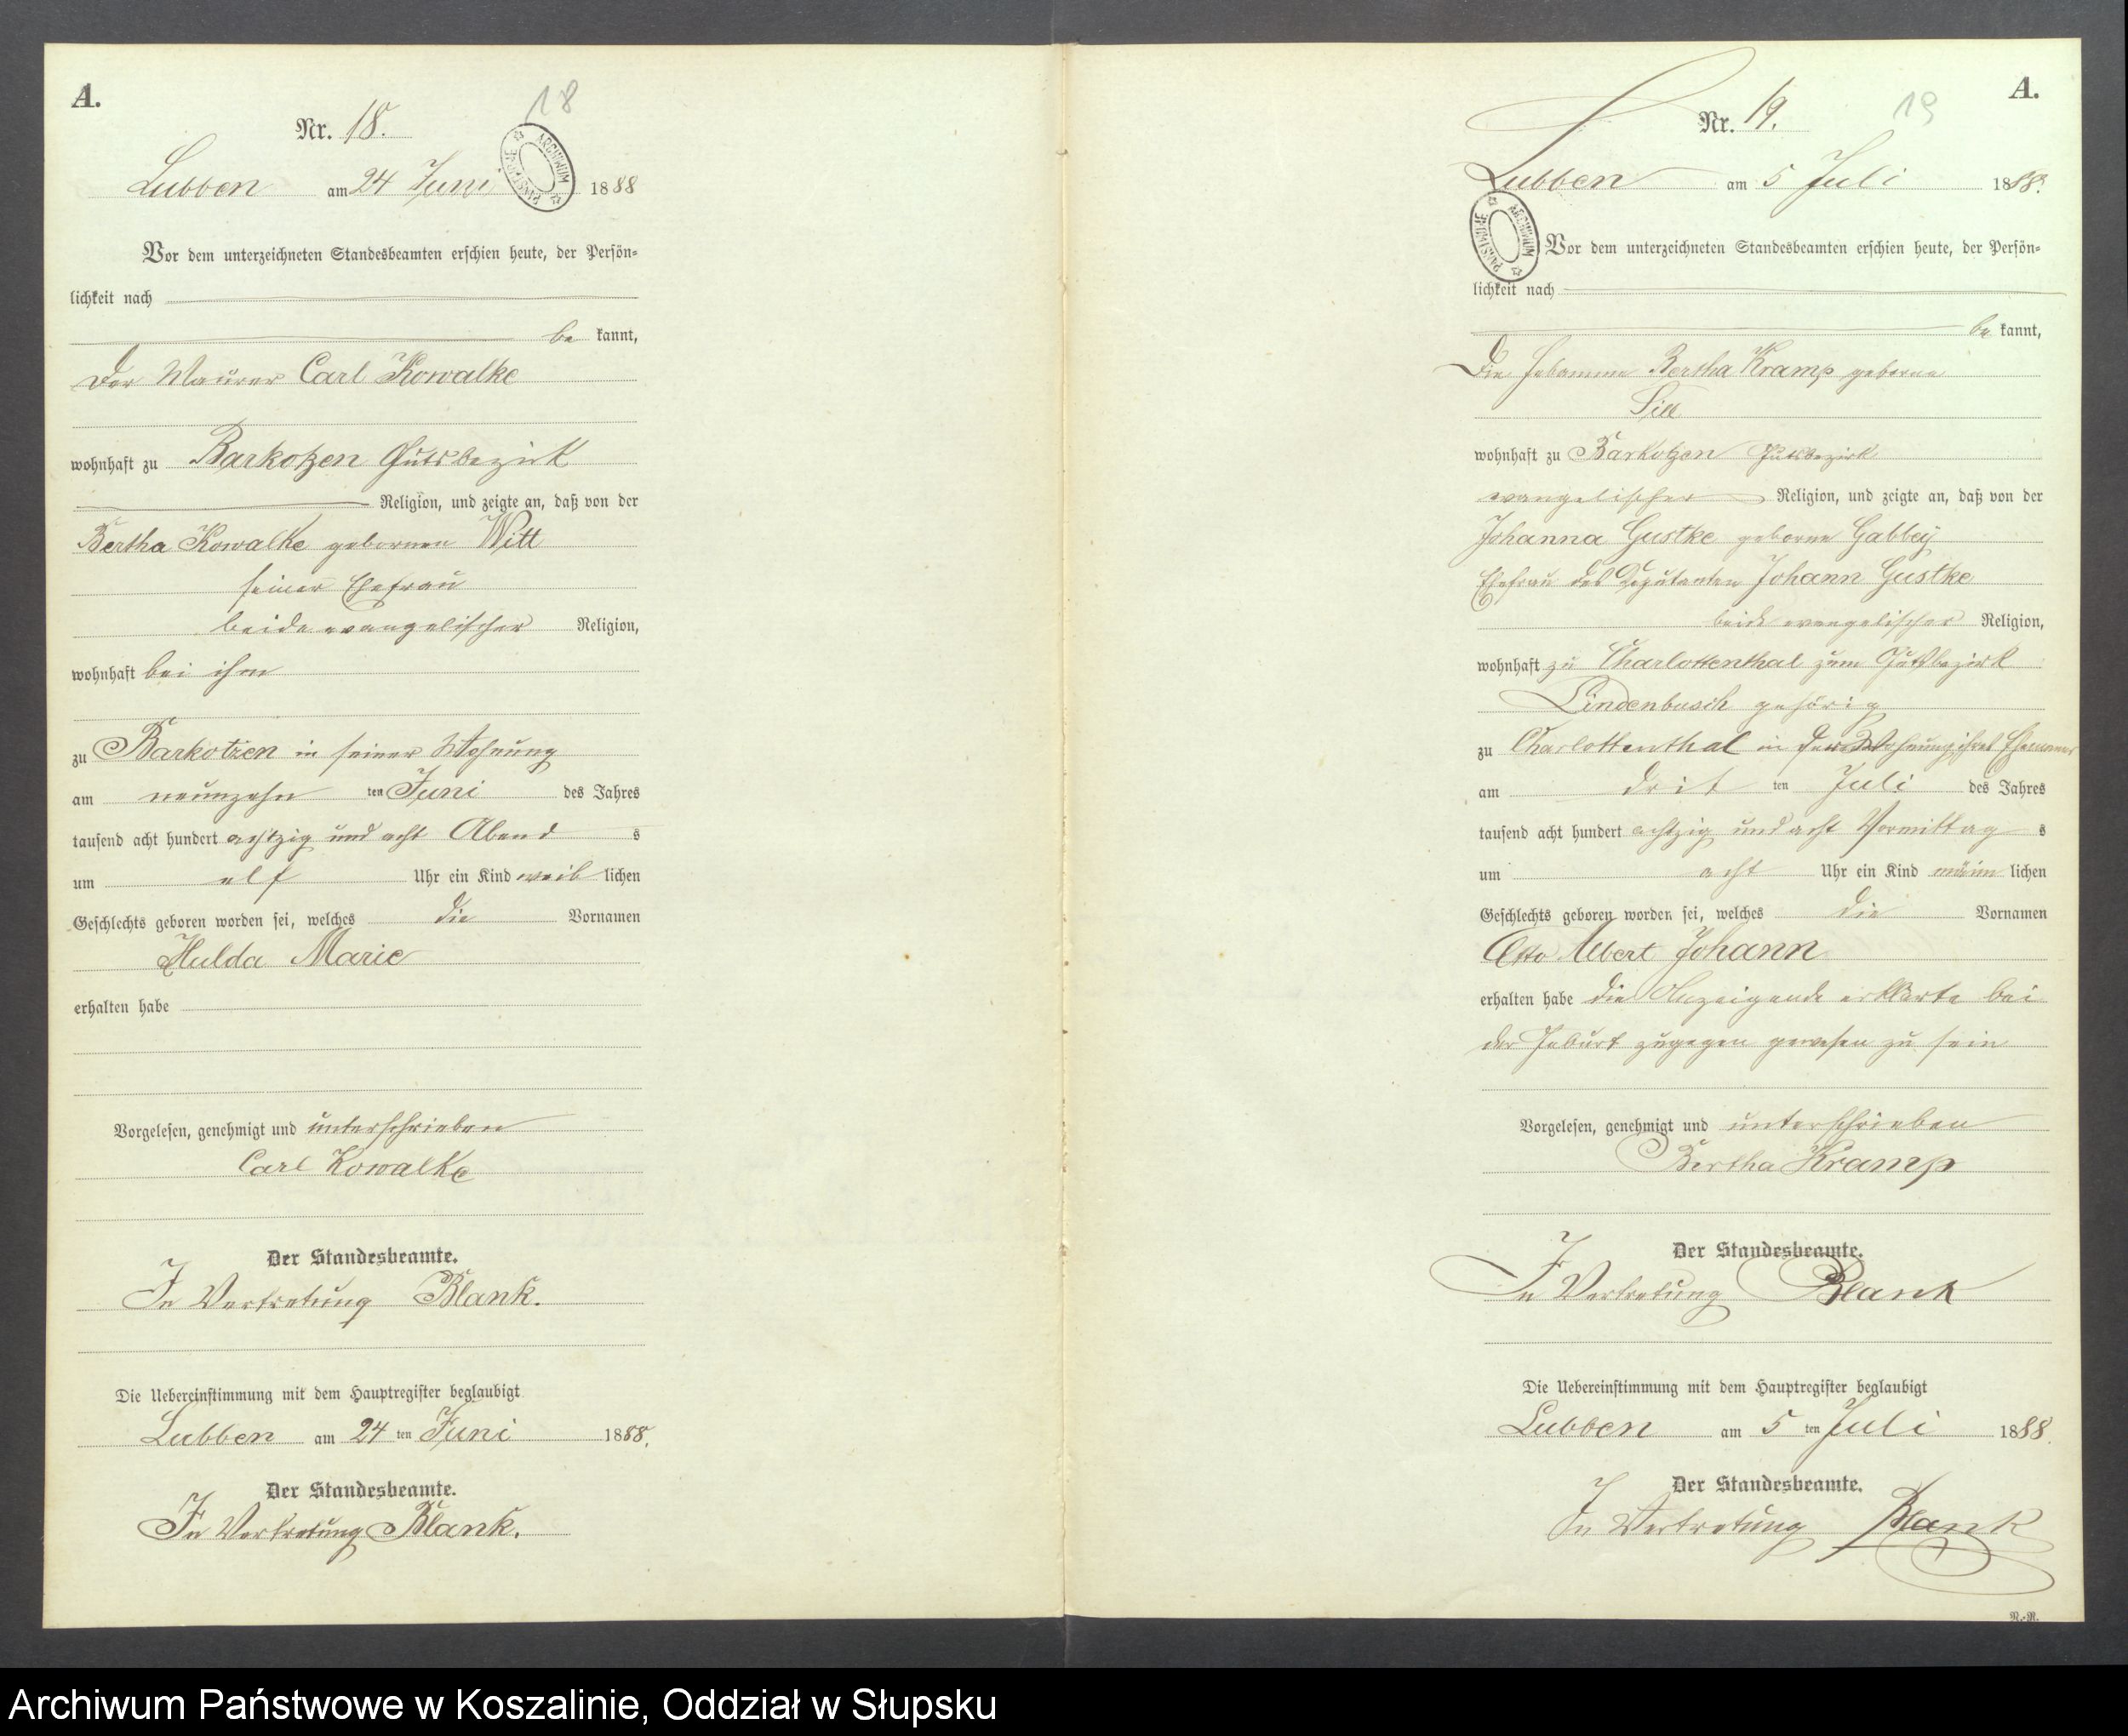 A.
18
Nr. 18.
Lubben am 24 Juni 1888
ARCHIWUM PAŃSTWOWE
Vor dem unterzeichneten Standesbeamten erschien heute, der Persön-
lichkeit nach
be kannt,
der Maurer Carl Kowalke
wohnhaft zu Barkotzen Gutsbezirk
Religion, und zeigte an, daß von der
Bertha Kowalke gebornen Witt
seiner Ehefrau
beide evangelischer Religion,
wohnhaft bei ihm
zu Barkotzen in seiner Wohnung
am neunzehn ten Juni des Jahres
tausend acht hundert achtzig und acht Abend s
um elf Uhr ein Kind weib lichen
Geschlechts geboren worden sei, welches die Vornamen
Hulda Marie
erhalten habe
Vorgelesen, genehmigt und unterschrieben
Carl Kowalke
Der Standesbeamte.
In Vertretung Blank.
Die Uebereinstimmung mit dem Hauptregister beglaubigt
Lubben am 24 ten Juni 1888.
Der Standesbeamte.
In Vertretung Blank.
A.
19
Nr. 19.
Lubben am 5 Juli 1888.
ARCHIWUM PAŃSTWOWE
Vor dem unterzeichneten Standesbeamten erschien heute, der Persön-
lichkeit nach
be kannt,
Die Hebamme Bertha Kramp geborne
wohnhaft zu Barkotzen Gutsbezirk
evangelischer Religion, und zeigte an, daß von der
Johanna Gustke geborne Gabbey
Ehefrau des Deputanten Johann Gustke
beide evangelischer Religion,
wohnhaft zu Charlottenthal zum Gutsbezirk
Lindenbusch gehörig
zu Charlottenthal in der Wohnung ihres Ehemannes
am drit ten Juli des Jahres
tausend acht hundert achtzig und acht Vormittag s
um acht Uhr ein Kind männ lichen
Geschlechts geboren worden sei, welches die Vornamen
Otto Albert Johann
erhalten habe die Anzeigende erklärte bei
der Geburt zugegen gewesen zu sein
Vorgelesen, genehmigt und unterschrieben
Bertha Kramp
Der Standesbeamte.
In Vertretung Blank
Die Uebereinstimmung mit dem Hauptregister beglaubigt
Lubben am 5 ten Juli 1888.
Der Standesbeamte.
In Vertretung Blank
N.-R.
Archiwum Państwowe w Koszalinie, Oddział w Słupsku